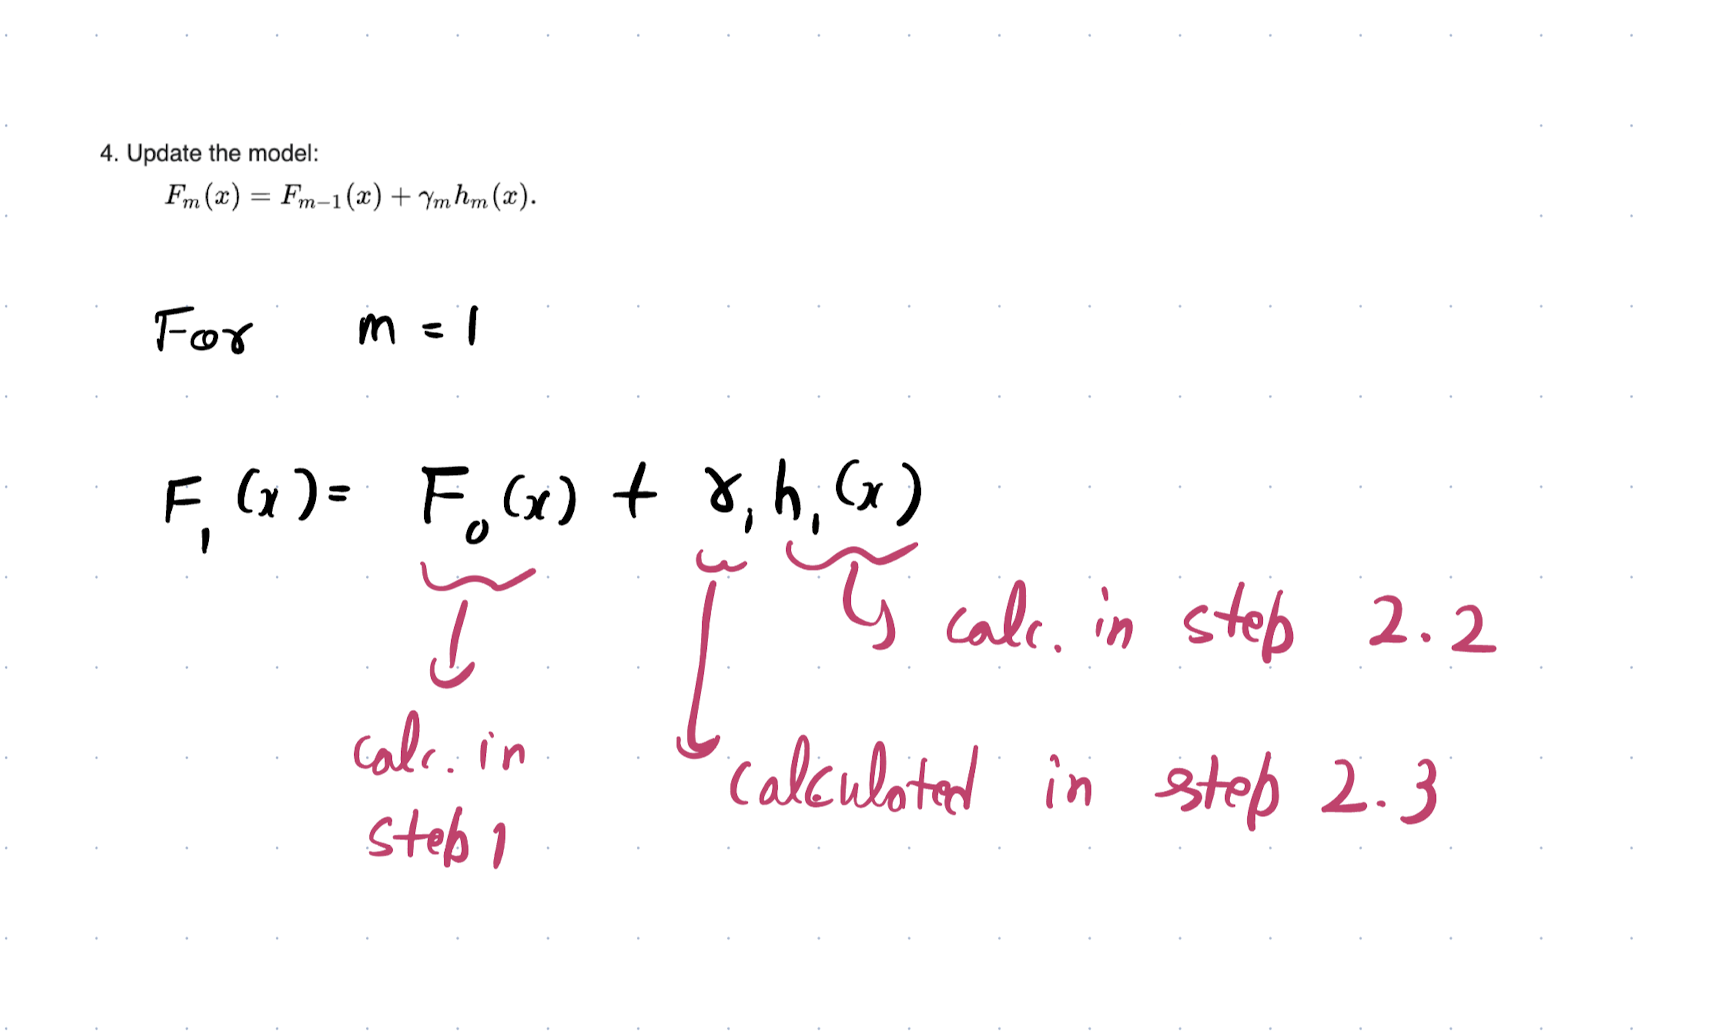 4. Update the model:
Fₘ(x) = Fₘ₋₁(x) + γₘhₘ(x).
For m = 1
F₁(x) = F₀(x) + γ₁h₁(x)
calc. in step 2.2
calc. in
step 1
calculated in step 2.3